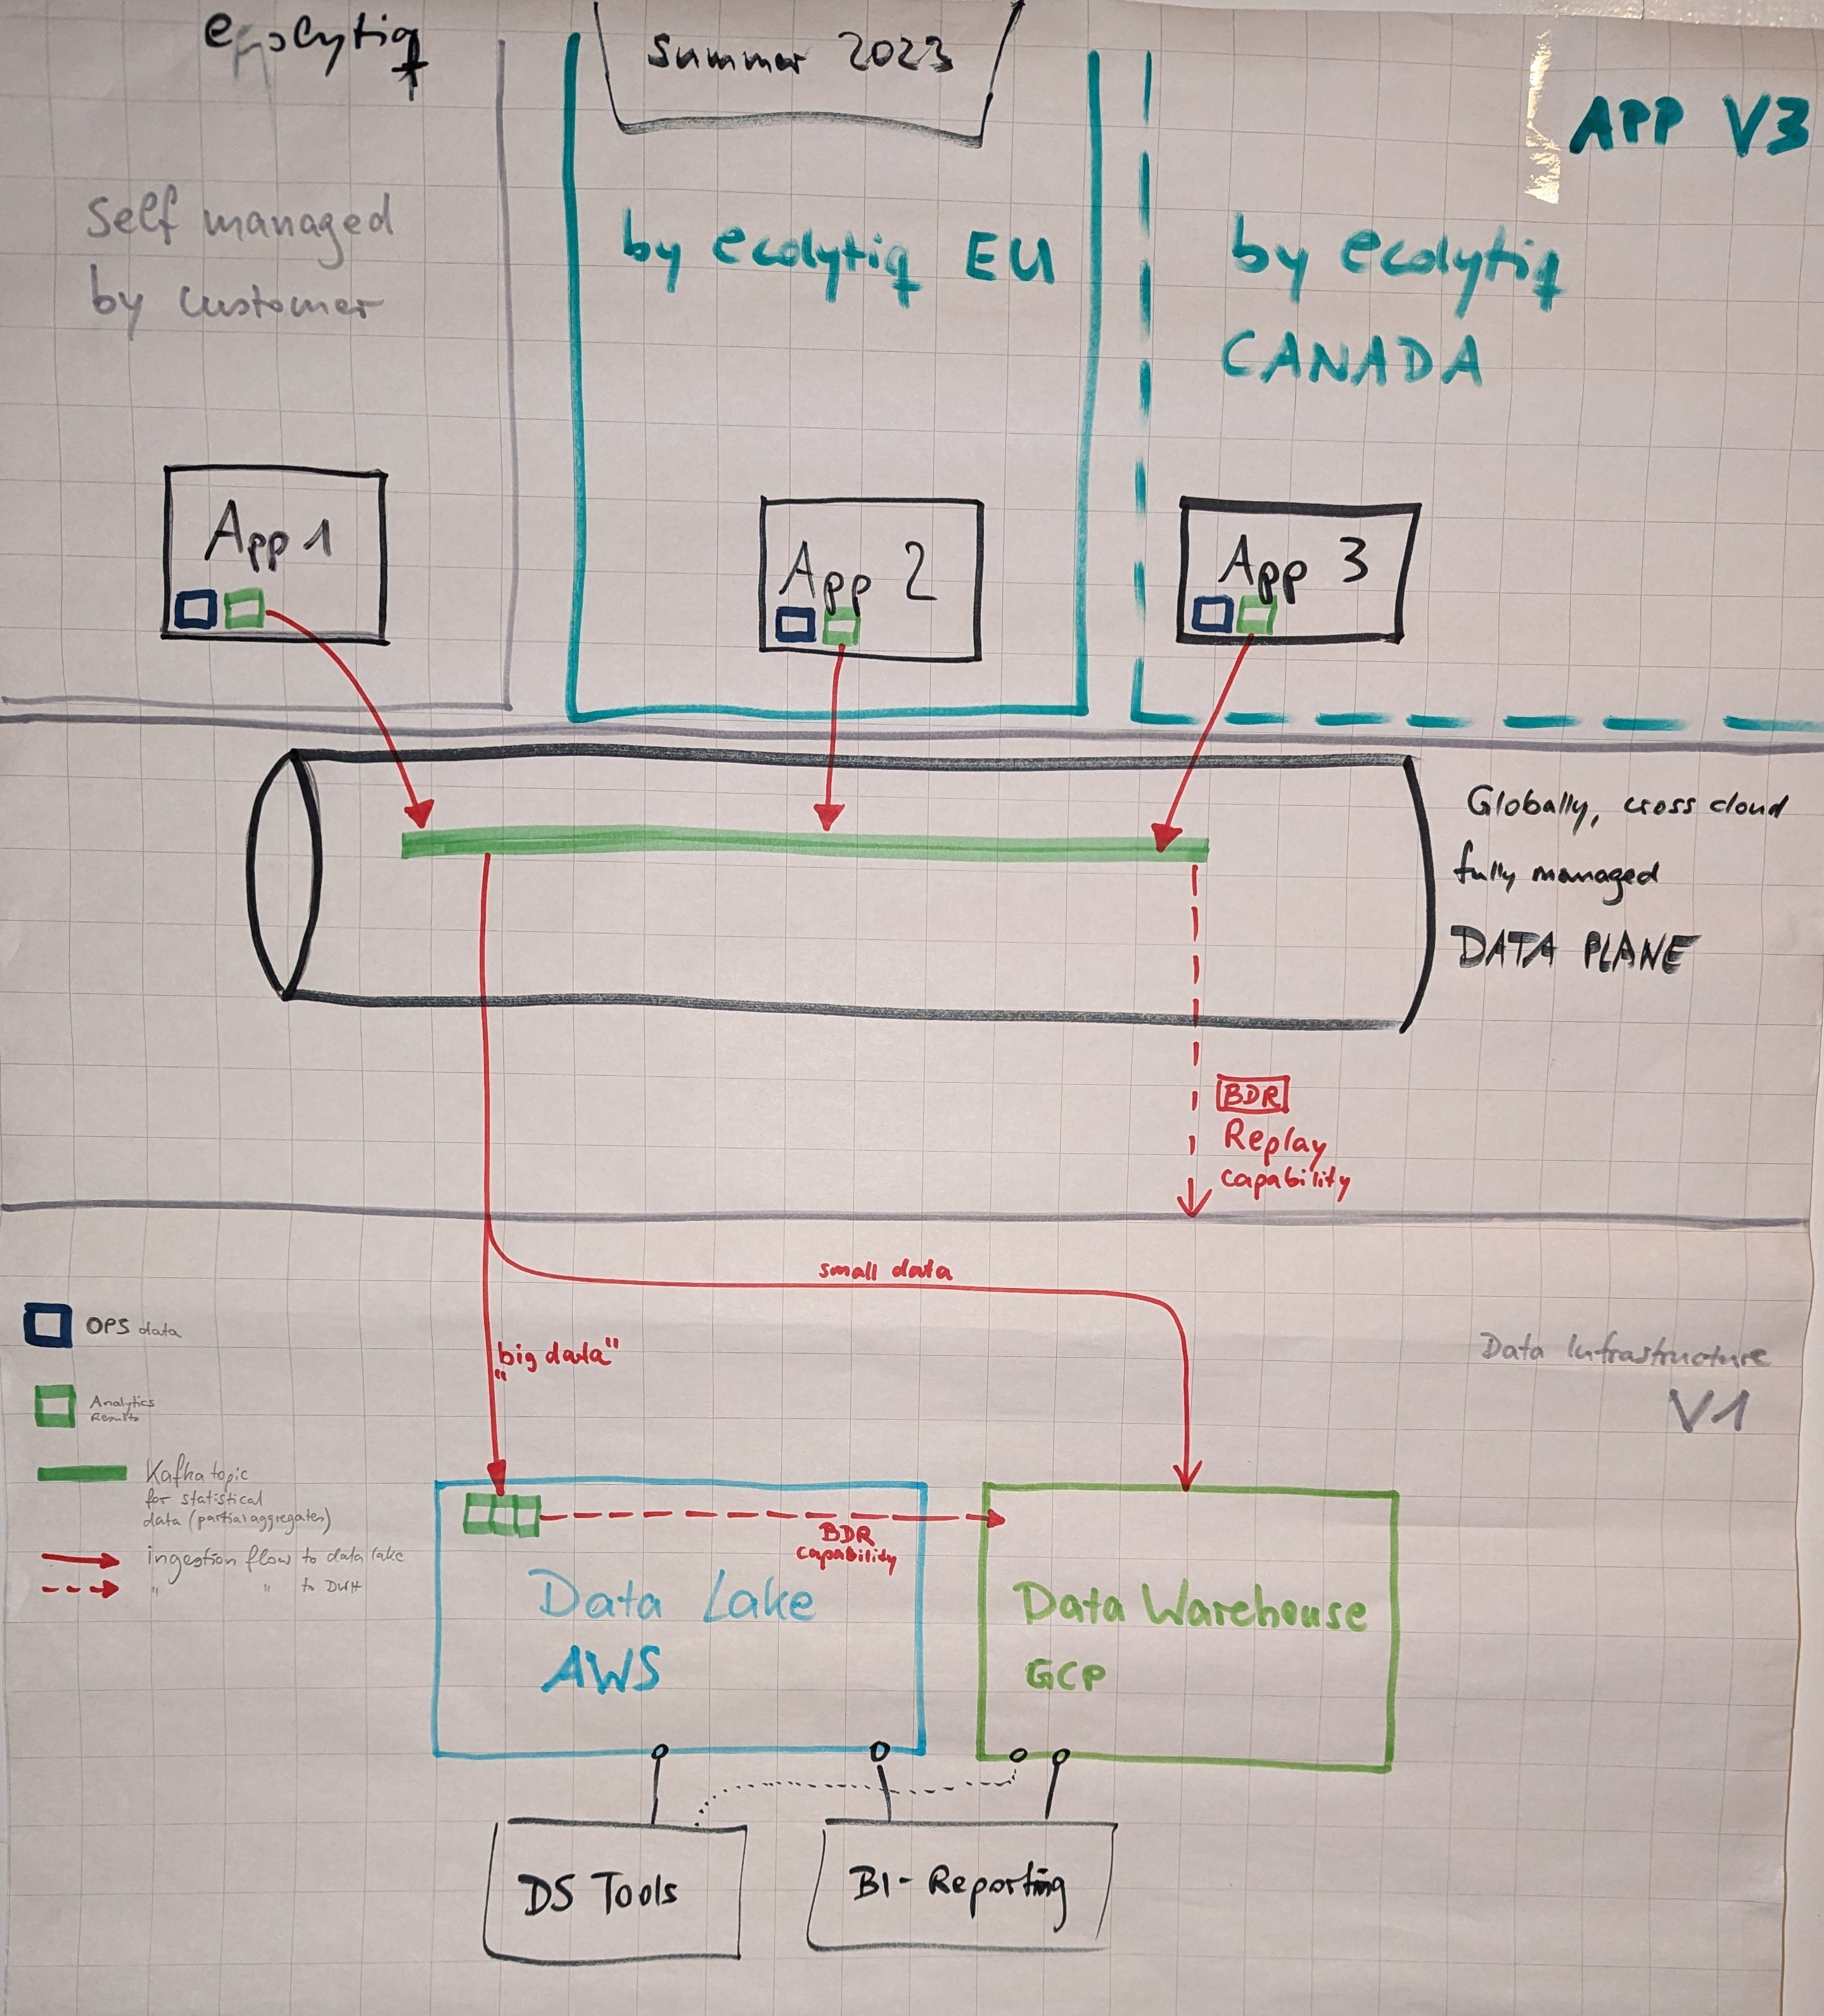 ecolytiq
Summer 2023
APP V3
Self managed
by customer
by ecolytiq EU
by ecolytiq
CANADA
App 1
App 2
App 3
Globally, cross cloud
fully managed
DATA PLANE
BDR
Replay
capability
small data
"big data"
OPS data
Analytics
Results
Kafka topic
for statistical
data (partial aggregates)
ingestion flow to data lake
" " to DWH
Data Infrastructure
V1
BDR
capability
Data Lake
AWS
Data Warehouse
GCP
DS Tools
BI-Reporting